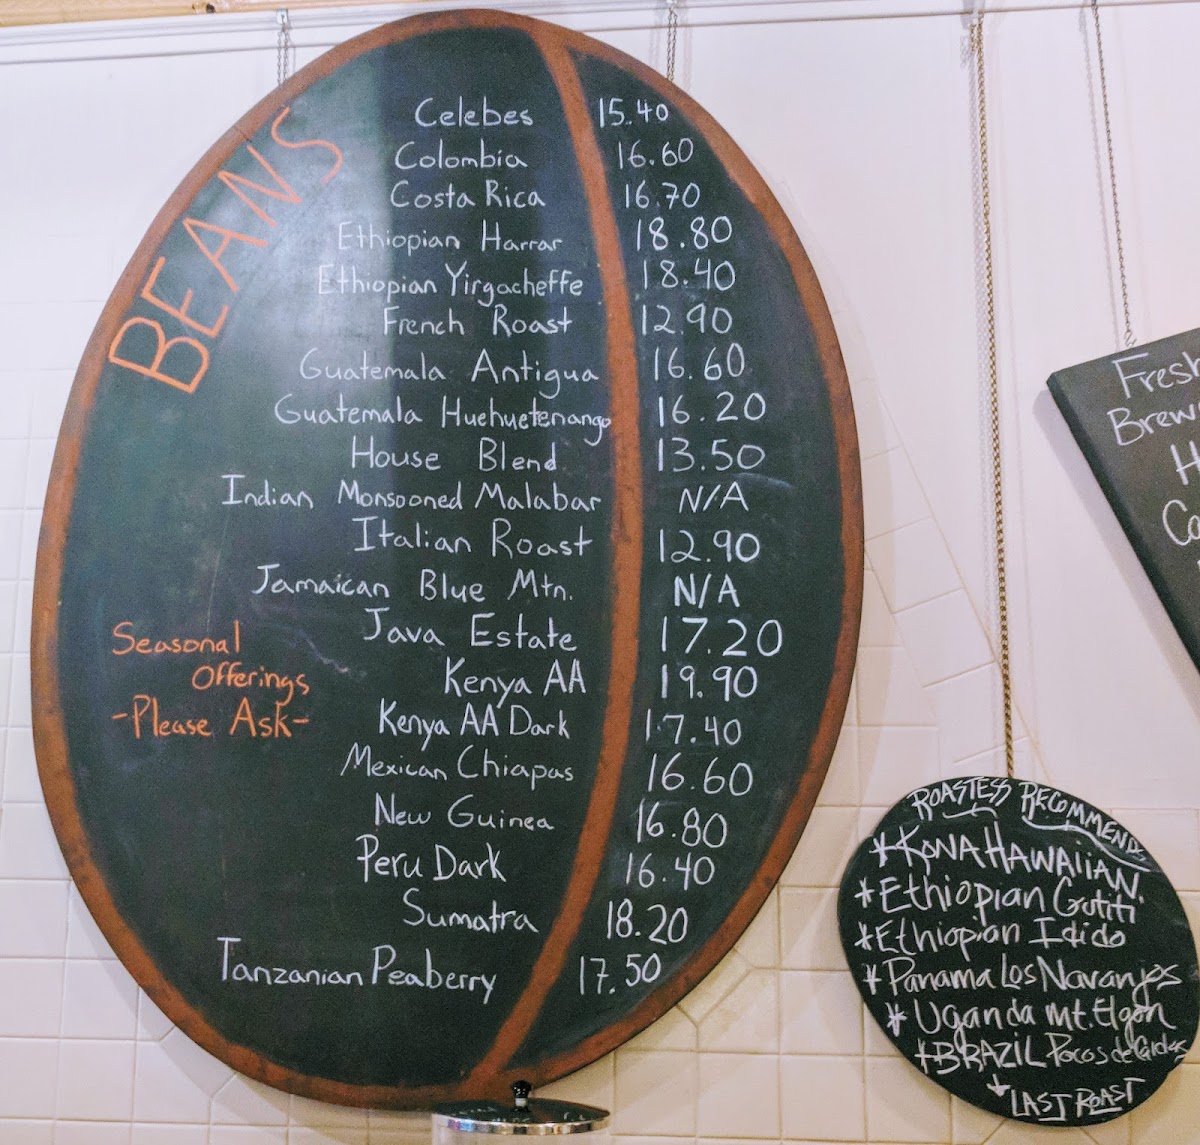 BEANS
Celebes 15.40
Colombia 16.60
Costa Rica 16.70
Ethiopian Harrar 18.80
Ethiopian Yirgacheffe 18.40
French Roast 12.90
Guatemala Antigua 16.60
Guatemala Huehuetenango 16.20
House Blend 13.50
Indian Monsooned Malabar N/A
Italian Roast 12.90
Jamaican Blue Mtn. N/A
Java Estate 17.20
Kenya AA 19.90
Kenya AA Dark 17.40
Mexican Chiapas 16.60
New Guinea 16.80
Peru Dark 16.40
Sumatra 18.20
Tanzanian Peaberry 17.50
Seasonal
Offerings
-Please Ask-
Fresh
Brew
H
Co
ROASTESS RECOMMENDS
*KONA HAWAIIAN
*Ethiopian Gutiti
*Ethiopian Idido
*Panama Los Naranjos
*Uganda Mt. Elgon
*BRAZIL Pocos de
LAST ROAST